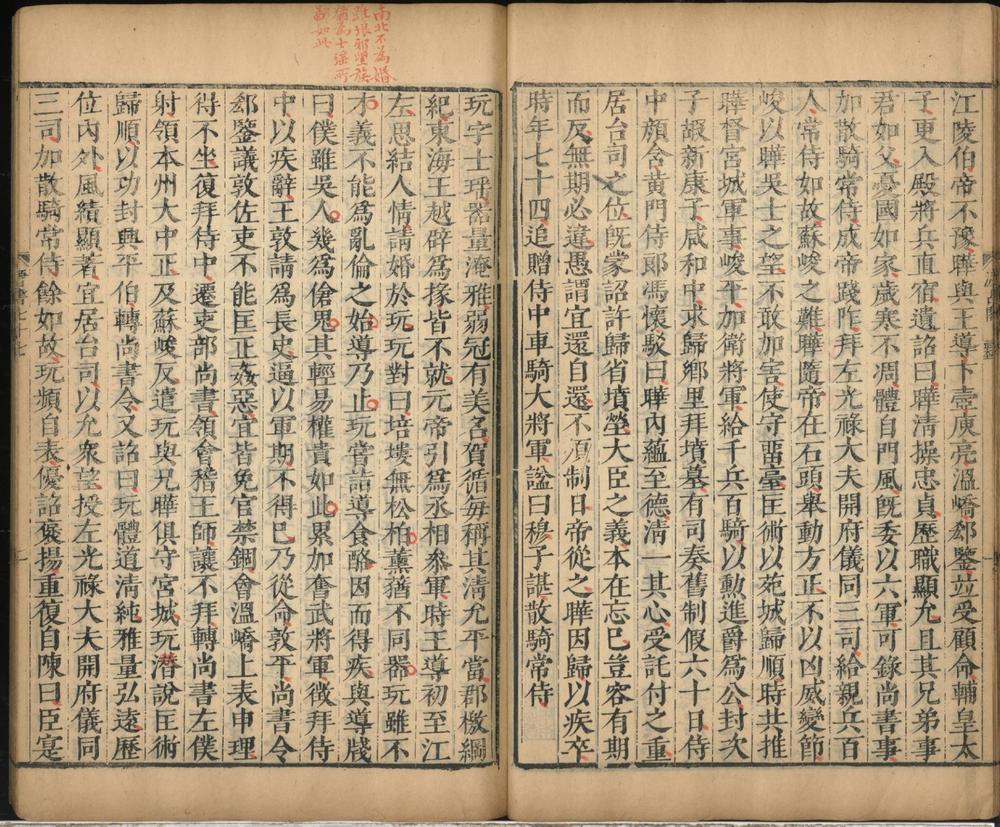 江陵伯帝不豫曄與王導卞壼庾亮溫嶠郄鑒竝受顧命輔皇太
子更入殿將兵直宿遺詔曰曄淸操忠貞歷職顯允且其兄弟事
君如父憂國如家歲寒不凋體自門風旣委以六軍可錄尚書事
加散騎常侍成帝踐阼拜左光祿大夫開府儀同三司給親兵百
人常侍如故蘇峻之難曄隨帝在石頭舉動方正不以凶威變節
峻以曄吳士之望不敢加害使守畱臺匡術以苑城歸順時共推
曄督宮城軍事峻平加衛將軍給千兵百騎以勳進爵爲公封次
子嘏新康子咸和中求歸鄕里拜墳墓有司奏舊制假六十日侍
中顏含黃門侍郎馮懷駁曰曄內蘊至德淸一其心受託付之重
居台司之位旣蒙詔許歸省墳塋大臣之義本在忘己豈容有期
而反無期必違愚謂宜還自還不須制日帝從之曄因歸以疾卒
時年七十四追贈侍中車騎大將軍諡曰穆子諶散騎常侍
南北不爲婚
雖琅邪望族
猶爲士瑶所
鄙如此
玩字士瑤器量淹雅弱冠有美名賀循每稱其淸允平當郡檄綱
紀東海王越辟爲掾皆不就元帝引爲丞相參軍時王導初至江
左思結人情請婚於玩玩對曰培塿無松柏薰蕕不同器玩雖不
才義不能爲亂倫之始導乃止玩嘗詣導食酪因而得疾與導牋
曰僕雖吳人幾爲傖鬼其輕易權貴如此累加奮武將軍徵拜侍
中以疾辭王敦請爲長史逼以軍期不得已乃從命敦平尚書令
郄鑒議敦佐吏不能匡正姦惡宜皆免官禁錮會溫嶠上表申理
得不坐復拜侍中遷吏部尚書領會稽王師讓不拜轉尚書左僕
射領本州大中正及蘇峻反遣玩與兄曄俱守宮城玩潛說匡術
歸順以功封興平伯轉尚書令又詔曰玩體道淸純雅量弘遠歷
位內外風績顯著宜居台司以允衆望授左光祿大夫開府儀同
三司加散騎常侍餘如故玩頻自表優詔襃揚重復自陳曰臣寔